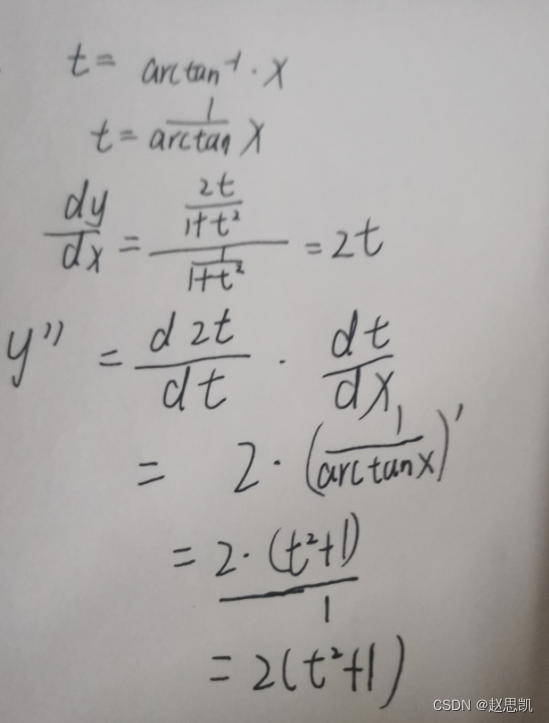 t = arctan⁻¹ · x
t = \frac{1}{arctan} x
\frac{dy}{dx} = \frac{\frac{2t}{1+t²}}{\frac{1}{1+t²}} = 2t
y'' = \frac{d 2t}{dt} · \frac{dt}{dx}
= 2 · (\frac{1}{arctanx})'
= \frac{2 · (t²+1)}{1}
= 2(t²+1)
CSDN @赵思凯